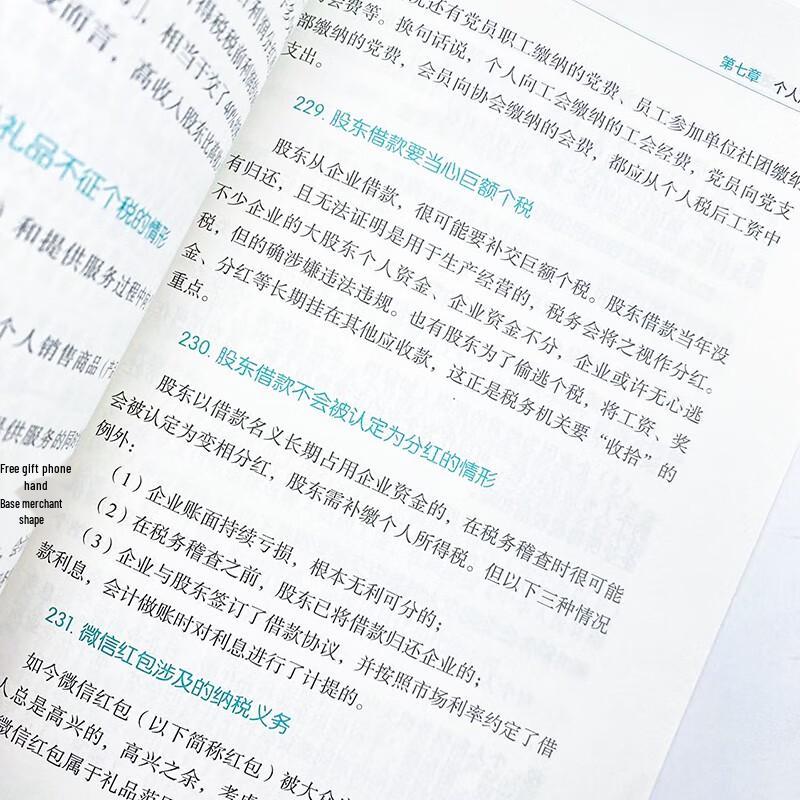 相当于交了40%
而言，高收入股东比
礼品不征个税的情形
和提供服务过程中
个人销售商品（
提供服务的同
Free gift phone
hand
Base merchant
shape
第七章 个人
还有党员职工缴纳的党费、员工参加单位社团缴纳
会费等。换句话说，个人向工会缴纳的工会经费，党员向党支
部缴纳的党费，会员向协会缴纳的会费，都应从个人税后工资中
支出。
229. 股东借款要当心巨额个税
股东从企业借款，很可能要补交巨额个税。股东借款当年没
有归还，且无法证明是用于生产经营的，税务会将之视作分红。
不少企业的大股东个人资金、企业资金不分，企业或许无心逃
税，但的确涉嫌违法违规。也有股东为了偷逃个税，将工资、奖
金、分红等长期挂在其他应收款，这正是税务机关要“收拾”的
重点。
230. 股东借款不会被认定为分红的情形
股东以借款名义长期占用企业资金的，在税务稽查时很可能
会被认定为变相分红，股东需补缴个人所得税。但以下三种情况
例外：
（1）企业账面持续亏损，根本无利可分的；
（2）在税务稽查之前，股东已将借款归还企业的；
（3）企业与股东签订了借款协议，并按照市场利率约定了借
款利息，会计做账时对利息进行了计提的。
231. 微信红包涉及的纳税义务
如今微信红包（以下简称红包）被大众
人总是高兴的，高兴之余，考虑
微信红包属于礼品范